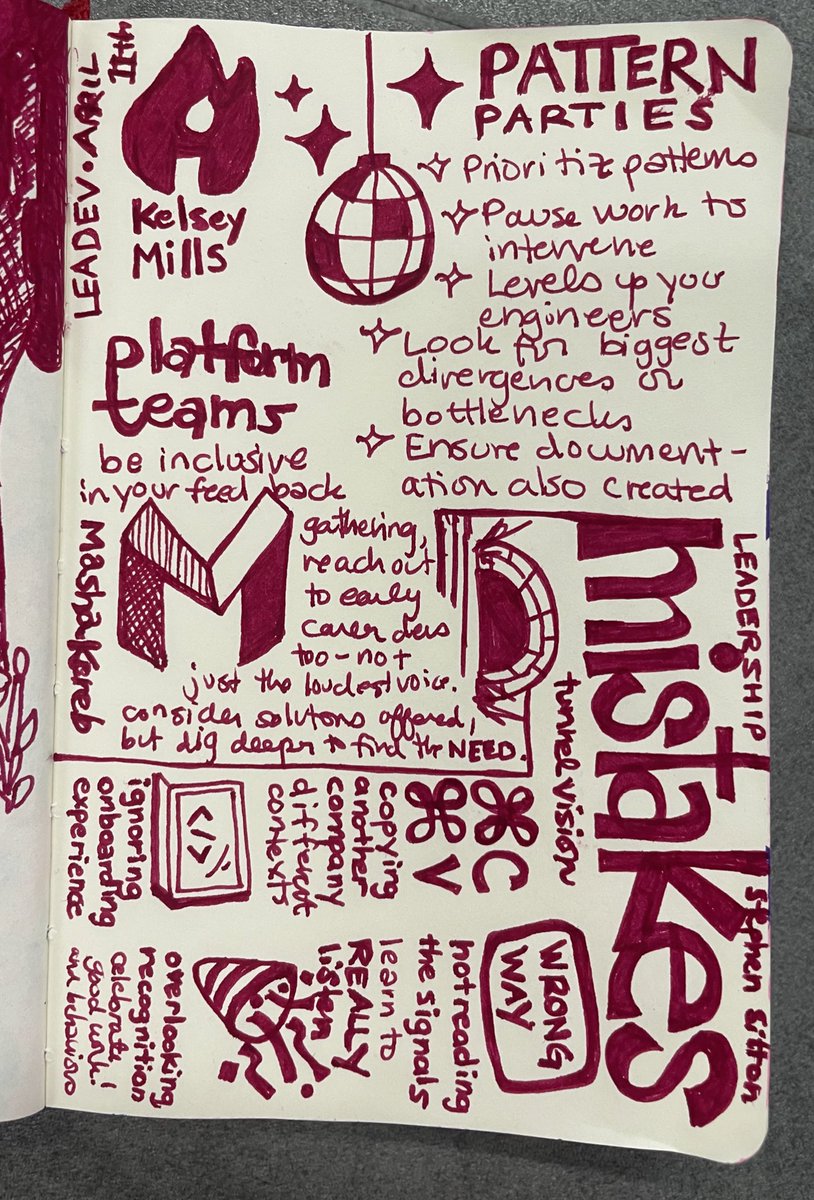 LEADEV • APRIL 11th
Kelsey
Mills
PATTERN
PARTIES
Prioritize patterns
Pause work to
intervene
Levels up your
engineers
Look for biggest
divergences or
bottlenecks
Ensure document-
ation also created
platform
teams
be inclusive
in your feedback
gathering,
reach out
to early
career devs
too - not
just the loudest voice.
consider solutions offered,
but dig deeper to find the NEED.
Masha
LEADERSHIP
mistakes
Stephen Sitton
tunnel vision
⌘C
⌘V
copying
another
company
different
contexts
</>
ignoring
onboarding
experience
WRONG
WAY
not reading
the signals
learn to
REALLY
listen
overlooking
recognition
celebrate
good work
and behaviors